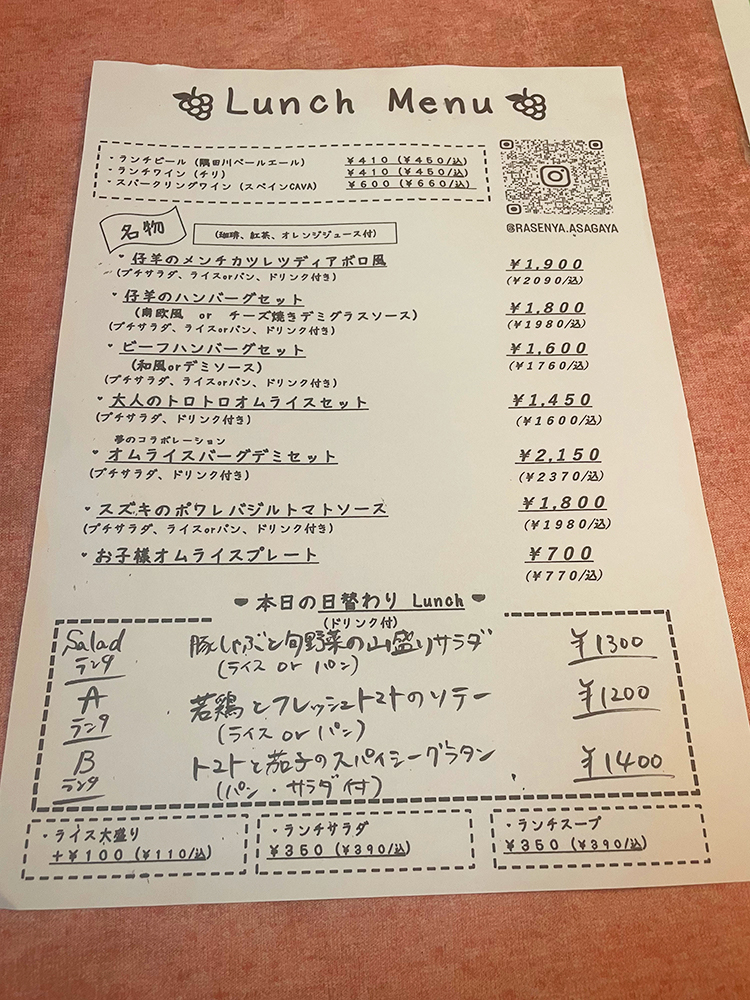 Lunch Menu
・ランチビール (隅田川ペールエール) ¥410 (¥450/込)
・ランチワイン (チリ) ¥410 (¥450/込)
・スパークリングワイン (スペインCAVA) ¥600 (¥660/込)
@RASENYA.ASAGAYA
名物
(珈琲、紅茶、オレンジジュース付)
仔羊のメンチカツレツディアボロ風 ¥1,900
(プチサラダ、ライスorパン、ドリンク付き) (¥2090/込)
仔羊のハンバーグセット ¥1,800
(南欧風 or チーズ焼きデミグラスソース)
(プチサラダ、ライスorパン、ドリンク付き) (¥1980/込)
ビーフハンバーグセット ¥1,600
(和風orデミソース) (¥1760/込)
(プチサラダ、ライスorパン、ドリンク付き)
大人のトロトロオムライスセット ¥1,450
(プチサラダ、ドリンク付き) (¥1600/込)
夢のコラボレーション
オムライスバーグデミセット ¥2,150
(プチサラダ、ドリンク付き) (¥2370/込)
スズキのポワレバジルトマトソース ¥1,800
(プチサラダ、ライスorパン、ドリンク付き) (¥1980/込)
お子様オムライスプレート ¥700
(¥770/込)
本日の日替わり Lunch
(ドリンク付)
Salad ランチ 豚しゃぶと旬野菜の山盛りサラダ ¥1300
(ライス or パン)
A ランチ 若鶏とフレッシュトマトのソテー ¥1200
(ライス or パン)
B ランチ トマトと茄子のスパイシーグラタン ¥1400
(パン・サラダ付)
・ライス大盛り
+¥100 (¥110/込)
・ランチサラダ
¥350 (¥390/込)
・ランチスープ
¥350 (¥390/込)